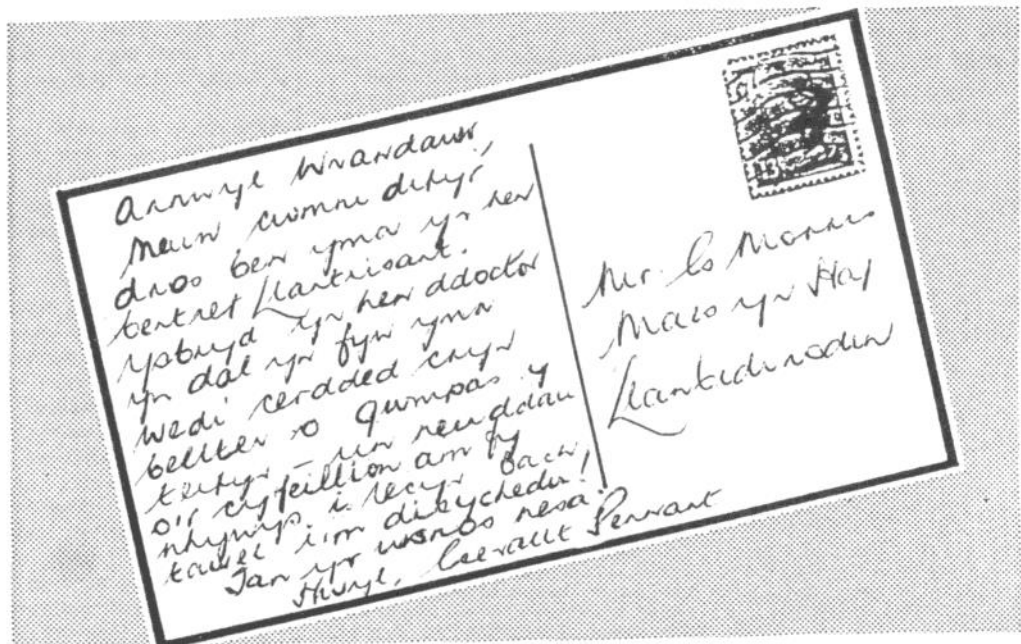 Annwyl Wrandawr,
Mewn cwmni difyr
dros ben yma yn hen
bentref Llantrisant.
Ysbryd yr hen ddoctor
yn dal yn fyw yma
wedi cerdded cryn
bellter o gwmpas y
terfyn – un neu ddau
o'r cyfeillion am fy
nhywys i lecyn bach
tawel i'm dibycheder!
Tan yr wsnos nesa!
Hwyl, Gerallt Pennant
Mr. Morris
Maes yr Haf
Llanfidinodin